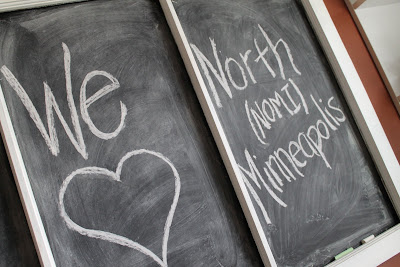 We
North
(NOMI)
Minneapolis